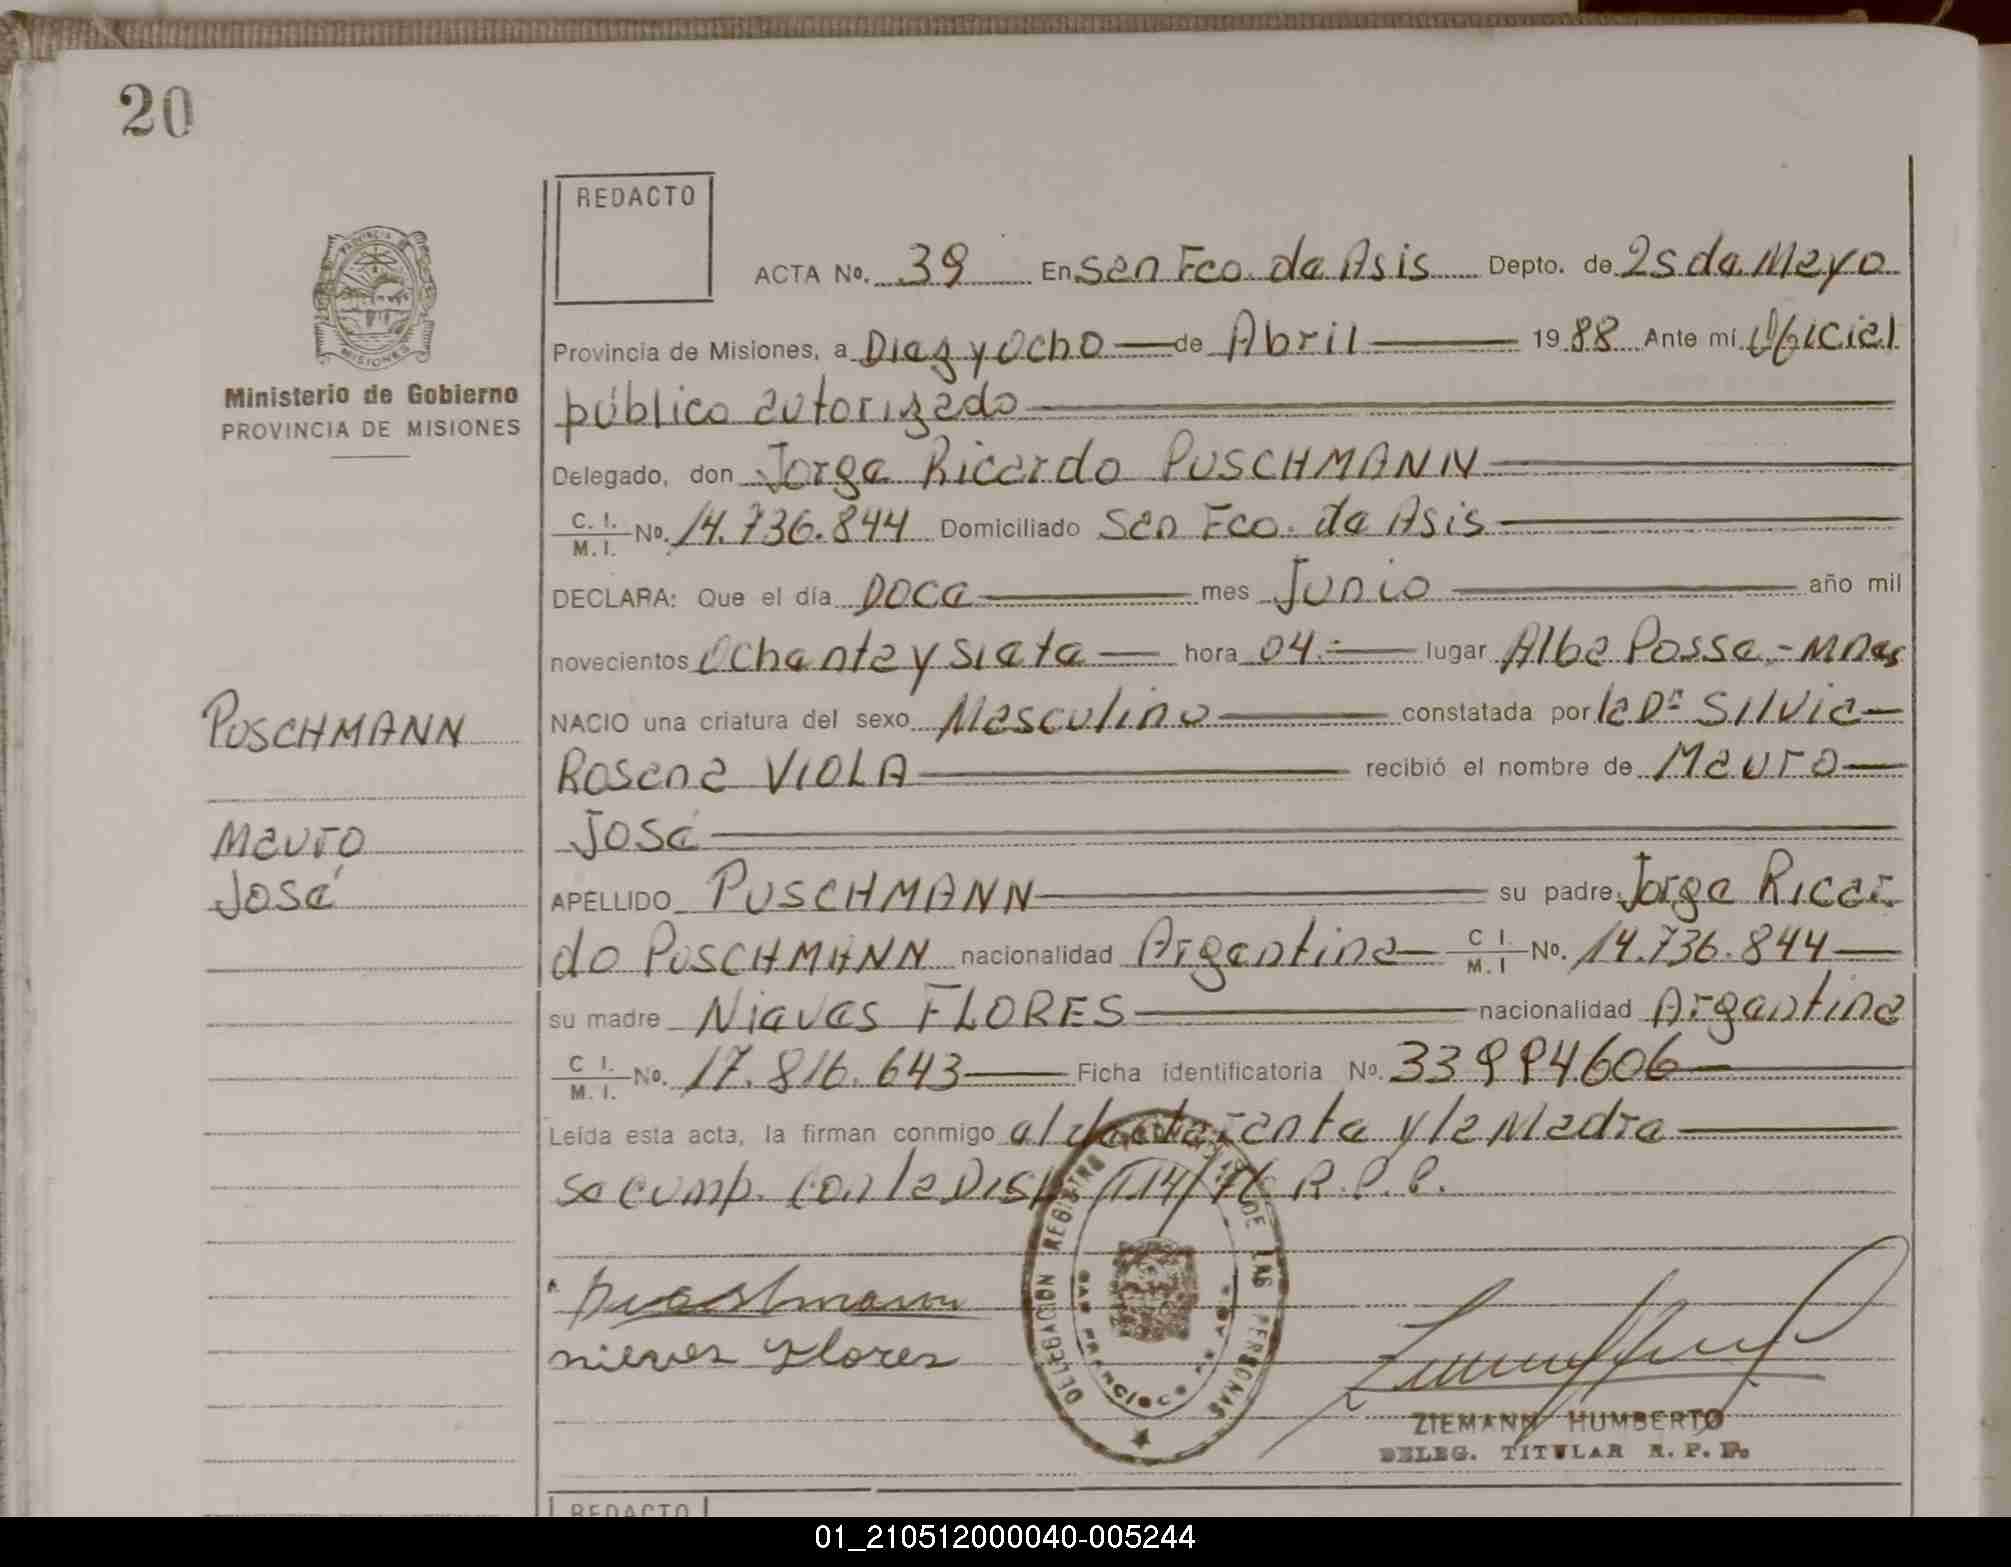 20
REDACTO
ACTA No. 39 En San Fco. de Asis Depto. de 25 de Mayo
Provincia de Misiones, a Diez y Ocho de Abril 1988 Ante mí Oficial
público autorizado
Delegado, don Jorge Ricardo PUSCHMANN
C. I. M. I. No. 14.736.844 Domiciliado San Fco. de Asis
DECLARA: Que el día Doce mes Junio año mil
novecientos Ochenta y Siete hora 04.- lugar Alba Posse - Mnes
NACIO una criatura del sexo Masculino constatada por la Dra Silvia
Rosana VIOLA recibió el nombre de Mauro
José
APELLIDO PUSCHMANN su padre Jorge Ricar
do PUSCHMANN nacionalidad Argentina C I. M. I No. 14.736.844
su madre Nieves FLORES nacionalidad Argentina
C I. M. I. No. 17.816.643 Ficha identificatoria No. 33994606
Leída esta acta, la firman conmigo el declarante y la Madre
se cump. con la Disp. 114/76 R.P.P.
Puschmann
nieves Flores
ZIEMANN HUMBERTO
DELEG. TITULAR R. P. P.
PROVINCIA DE
MISIONES
Ministerio de Gobierno
PROVINCIA DE MISIONES
PUSCHMANN
Mauro
José
DELEGACION REGISTRO DE LAS PERSONAS
SAN FRANCISCO DE ASIS
REDACTO
01_210512000040-005244